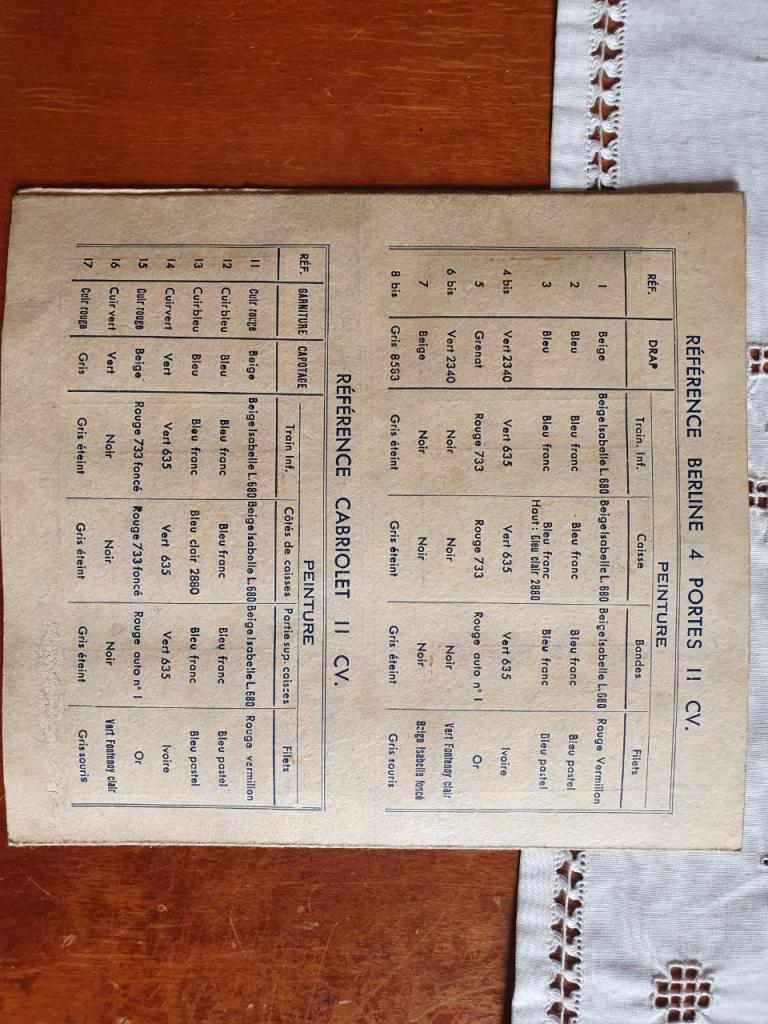 RÉFÉRENCE BERLINE 4 PORTES 11 CV.
RÉF. DRAP PEINTURE
Train. Inf. Caisse Bandes Filets
1 Beige Beige Isabelle L. 680 Beige Isabelle L. 680 Beige Isabelle L. 680 Rouge Vermillon
2 Bleu Bleu franc Bleu franc Bleu franc Bleu pastel
3 Bleu Bleu franc Bleu franc Bleu franc Bleu pastel
Haut : Bleu clair 2880
4 bis Vert 2340 Vert 635 Vert 635 Vert 635 Ivoire
5 Grenat Rouge 733 Rouge 733 Rouge auto n° 1 Or
6 bis Vert 2340 Noir Noir Noir Vert Fontenoy clair
7 Beige Noir Noir Noir Beige Isabelle foncé
8 bis Gris 8583 Gris éteint Gris éteint Gris éteint Gris souris
RÉFÉRENCE CABRIOLET 11 CV.
RÉF. GARNITURE CAPOTAGE PEINTURE
Train Inf. Côtés de caisses Partie sup. caisses Filets
11 Cuir rouge Beige Beige Isabelle L. 680 Beige Isabelle L. 680 Beige Isabelle L. 680 Rouge vermillon
12 Cuir bleu Bleu Bleu franc Bleu franc Bleu franc Bleu pastel
13 Cuir bleu Bleu Bleu franc Bleu clair 2880 Bleu franc Bleu pastel
14 Cuir vert Vert Vert 635 Vert 635 Vert 635 Ivoire
15 Cuir rouge Beige Rouge 733 foncé Rouge 733 foncé Rouge auto n° 1 Or
16 Cuir vert Vert Noir Noir Noir Vert Fontenoy clair
17 Cuir rouge Gris Gris éteint Gris éteint Gris éteint Gris souris